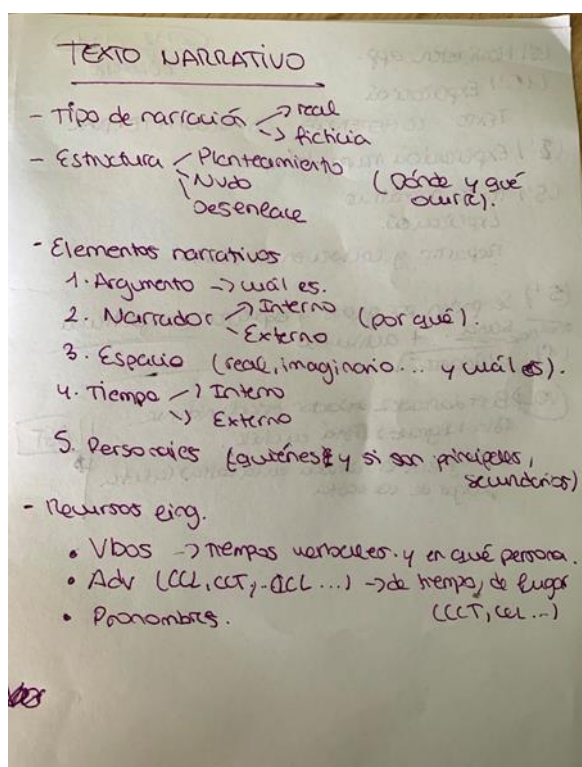 TEXTO NARRATIVO
- Tipo de narración → real
→ ficticia
- Estructura Planteamiento
Nudo (Dónde y qué ocurre).
Desenlace
- Elementos narrativos
1. Argumento → cuál es.
2. Narrador → Interno
Externo (por qué).
3. Espacio (real, imaginario... y cuál es).
4. Tiempo → Interno
→ Externo
5. Personajes (quiénes y si son principales,
secundarios)
- Recursos ling.
• Vbos → tiempos verbales y en qué persona.
• Adv (CCL, CCT, ...) → de tiempo, de lugar
(CCT, CCL...)
• Pronombres.